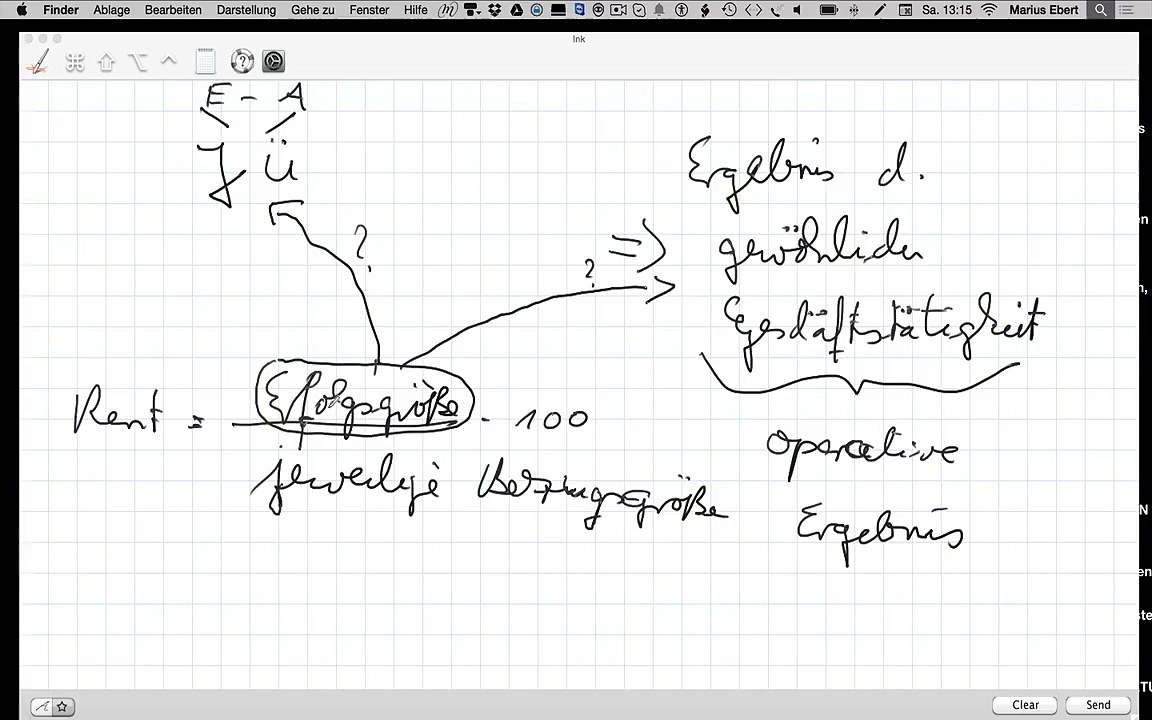 Finder Ablage Bearbeiten Darstellung Gehe zu Fenster Hilfe Sa. 13:15 Marius Ebert
Ink
E - A
J Ü
?
?
=> Ergebnis d.
gewöhnlichen
Geschäftstätigkeit
operative
Ergebnis
Rent = Erfolgsgröße · 100
jeweilige Bezugsgröße
Clear Send